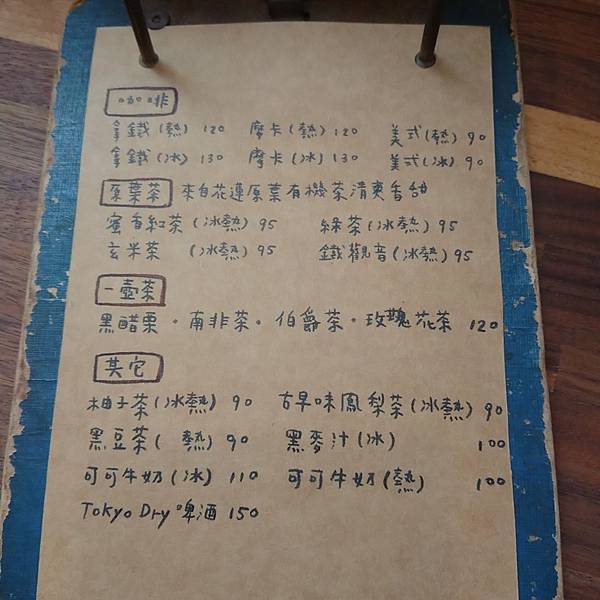 咖啡
拿鐵(熱) 120 摩卡(熱) 120 美式(熱) 90
拿鐵(冰) 130 摩卡(冰) 130 美式(冰) 90
原葉茶 來自花蓮原葉有機茶清爽香甜
蜜香紅茶(冰熱) 95 綠茶(冰熱) 95
玄米茶 (冰熱) 95 鐵觀音(冰熱) 95
一壺茶
黑醋栗。南非茶。伯爵茶。玫瑰花茶 120
其它
柚子茶(冰熱) 90 古早味鳳梨茶(冰熱) 90
黑豆茶( 熱) 90 黑麥汁(冰) 100
可可牛奶(冰) 110 可可牛奶(熱) 100
Tokyo Dry 啤酒 150